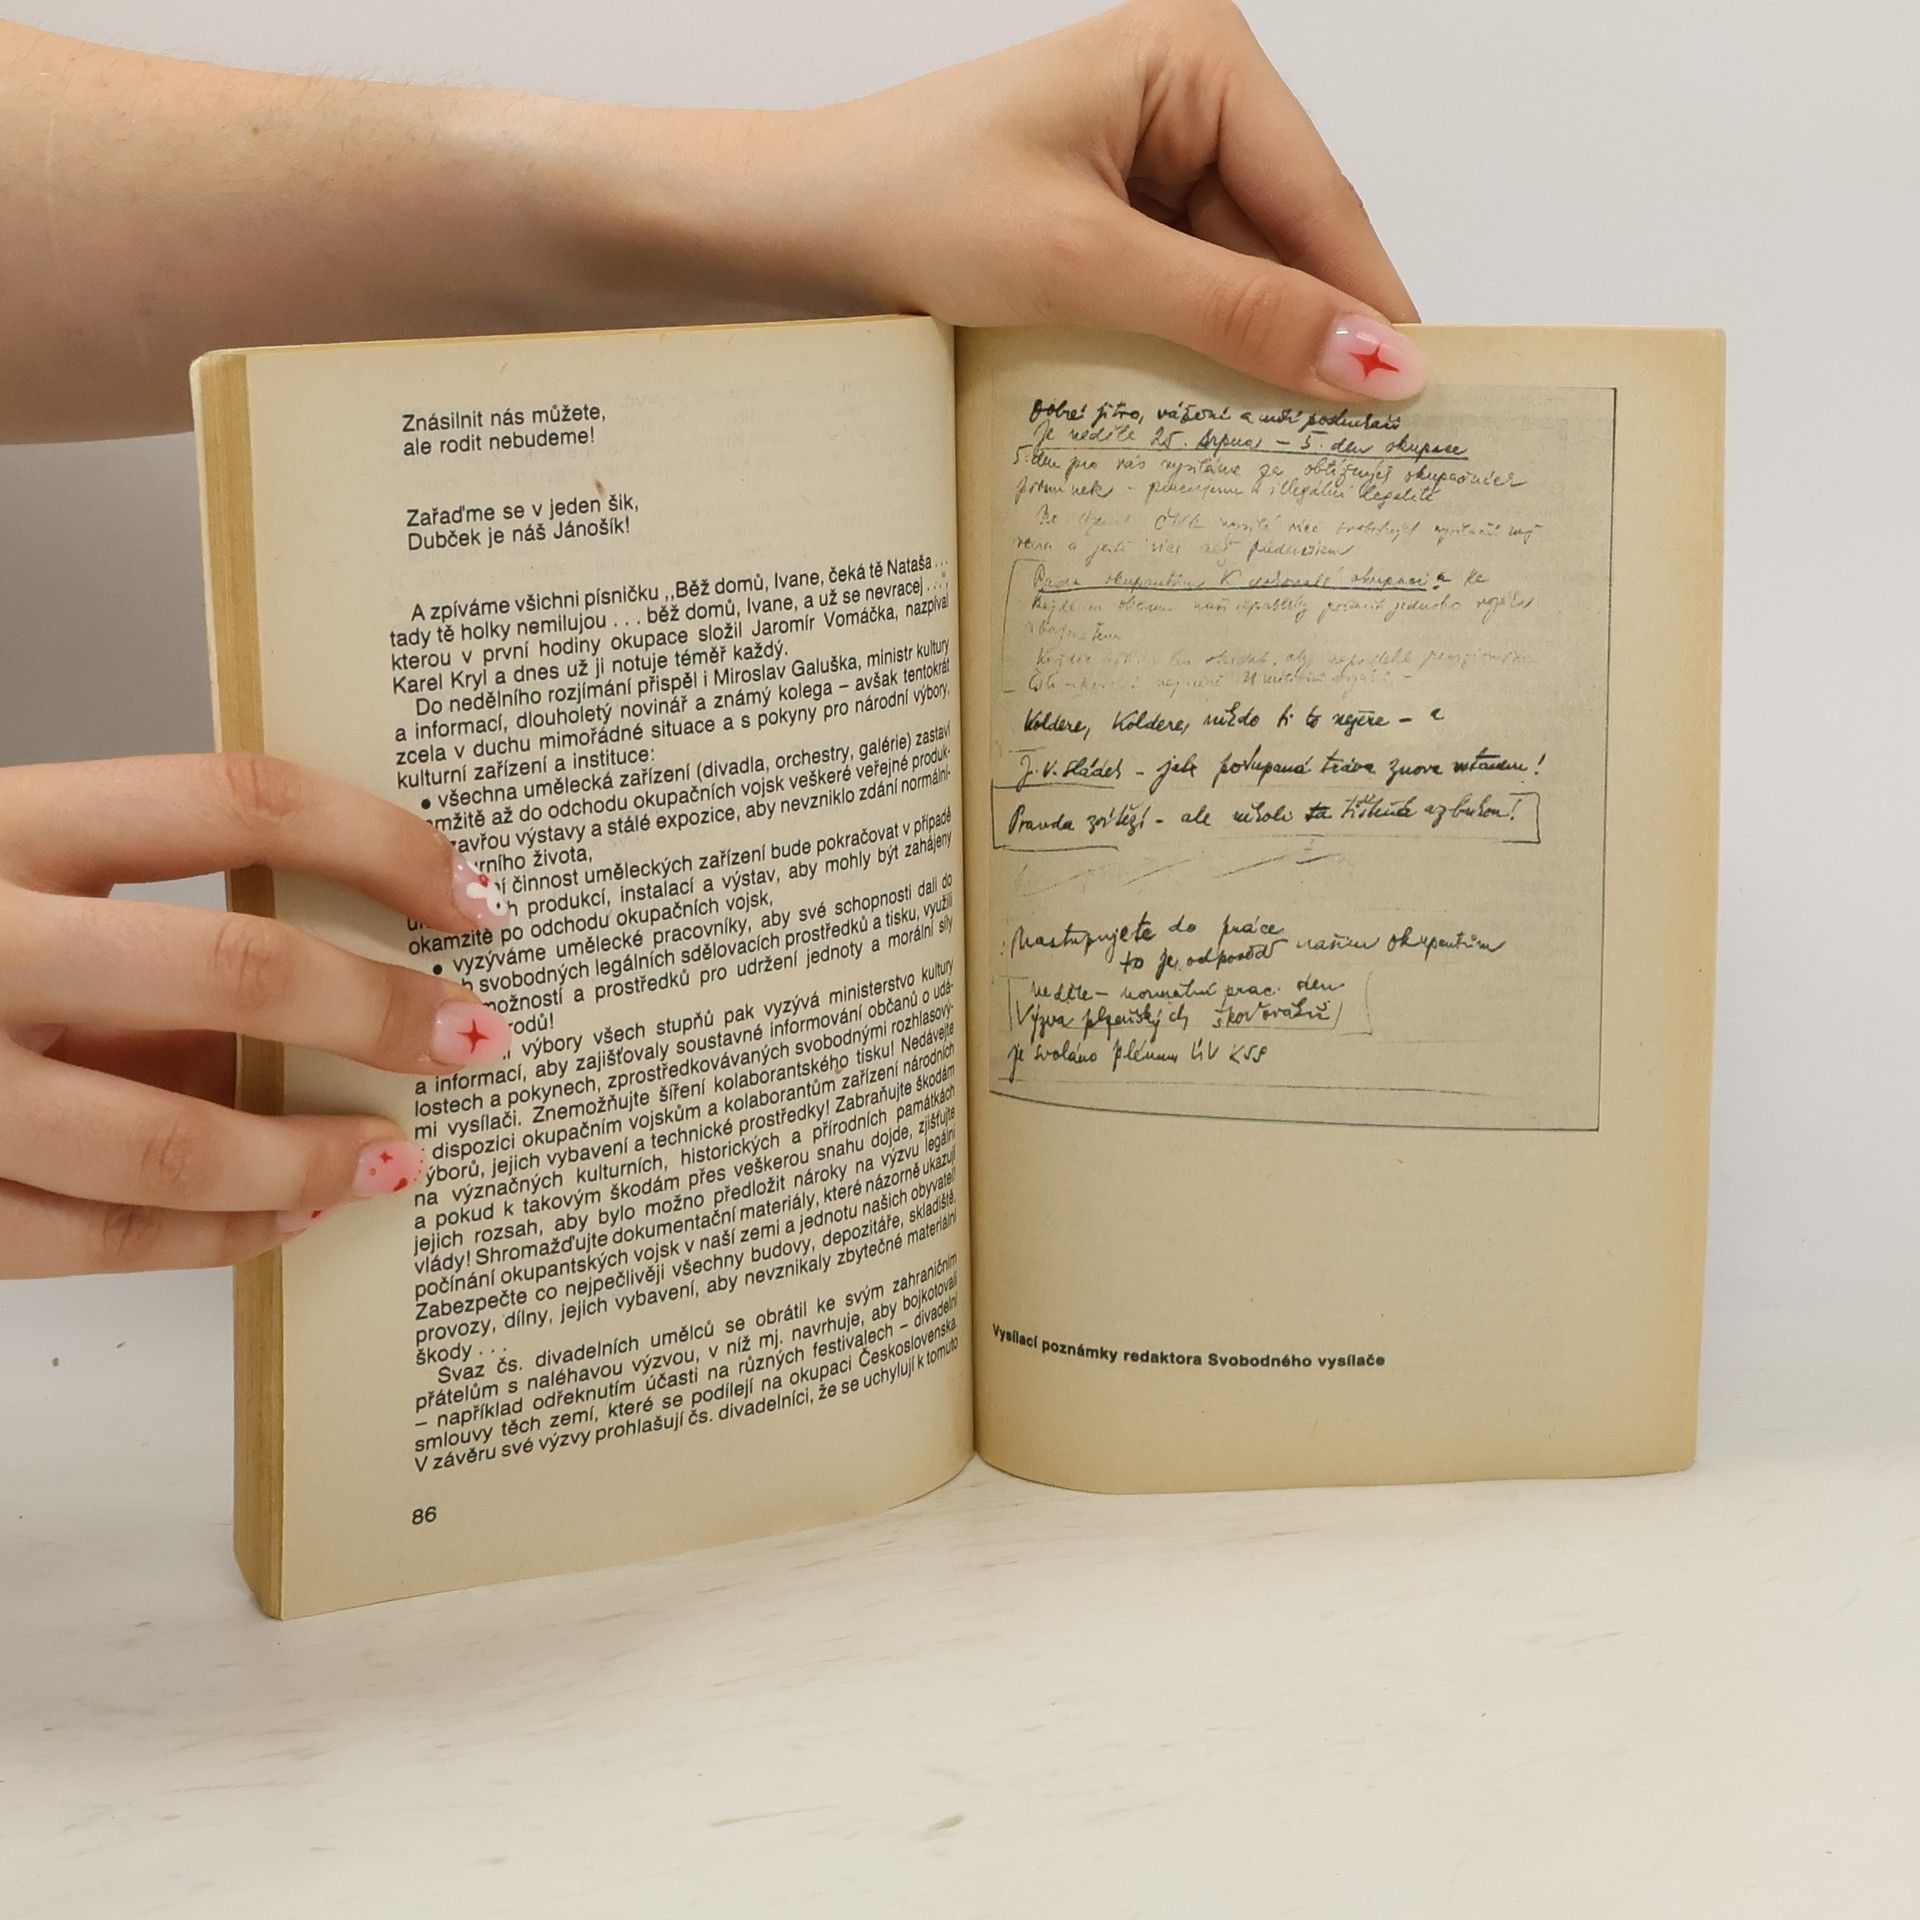 Znásilnit nás můžete,
ale rodit nebudeme!
Zařaďme se v jeden šik,
Dubček je náš Jánošík!
A zpíváme všichni písničku ,,Běž domů, Ivane, čeká tě Nataša . . .
tady tě holky nemilujou . . . běž domů, Ivane, a už se nevracej . . .,
kterou v první hodiny okupace složil Jaromír Vomáčka, nazpíval
Karel Kryl a dnes už ji notuje téměř každý.
Do nedělního rozjímání přispěl i Miroslav Galuška, ministr kultury
a informací, dlouholetý novinář a známý kolega – avšak tentokrát
zcela v duchu mimořádné situace a s pokyny pro národní výbory,
kulturní zařízení a instituce:
● všechna umělecká zařízení (divadla, orchestry, galérie) zastaví
až do odchodu okupačních vojsk veškeré veřejné produk-
výstavy a stálé expozice, aby nevzniklo zdání normální-
života,
činnost uměleckých zařízení bude pokračovat v případě
produkcí, instalací a výstav, aby mohly být zahájeny
okamžitě po odchodu okupačních vojsk,
● vyzýváme umělecké pracovníky, aby své schopnosti dali do
svobodných legálních sdělovacích prostředků a tisku, využili
možností a prostředků pro udržení jednoty a morální síly
výbory všech stupňů pak vyzývá ministerstvo kultury
a informací, aby zajišťovaly soustavné informování občanů o udá-
lostech a pokynech, zprostředkovávaných svobodnými rozhlasový-
mi vysílači. Znemožňujte šíření kolaborantského tisku! Nedávejte
dispozici okupačním vojskům a kolaborantům zařízení národních
výborů, jejich vybavení a technické prostředky! Zabraňujte škodám
na význačných kulturních, historických a přírodních památkách
a pokud k takovým škodám přes veškerou snahu dojde, zjišťujte
jejich rozsah, aby bylo možno předložit nároky na výzvu legální
vlády! Shromažďujte dokumentační materiály, které názorně ukazují
počínání okupantských vojsk v naší zemi a jednotu našich obyvatel!
Zabezpečte co nejpečlivěji všechny budovy, depozitáře, skladiště,
provozy, dílny, jejich vybavení, aby nevznikaly zbytečné materiální
škody . . .
Svaz čs. divadelních umělců se obrátil ke svým zahraničním
přátelům s naléhavou výzvou, v níž mj. navrhuje, aby bojkotovali
– například odřeknutím účasti na různých festivalech – divadelní
smlouvy těch zemí, které se podílejí na okupaci Československa.
V závěru své výzvy prohlašují čs. divadelníci, že se uchylují k tomuto
86
Dobré jitro, vážení a milí posluchači
Je neděle 25. srpna – 5. den okupace
5. den pro vás vysíláme za obtížných okupačních
podmínek – pracujeme v illegální legalitě
Koldere, Koldere, nikdo ti to nežere – a
J. V. Sládek – jak pošlapaná tráva znova vstanem!
Pravda zvítězí – ale nikoli tištěná azbukou!
Nastupujete do práce
to je odpověď našim okupantům
neděle – normální prac. den
Výzva plzeňských škodováků
je svoláno plénum ÚV KSS
Vysílací poznámky redaktora Svobodného vysílače